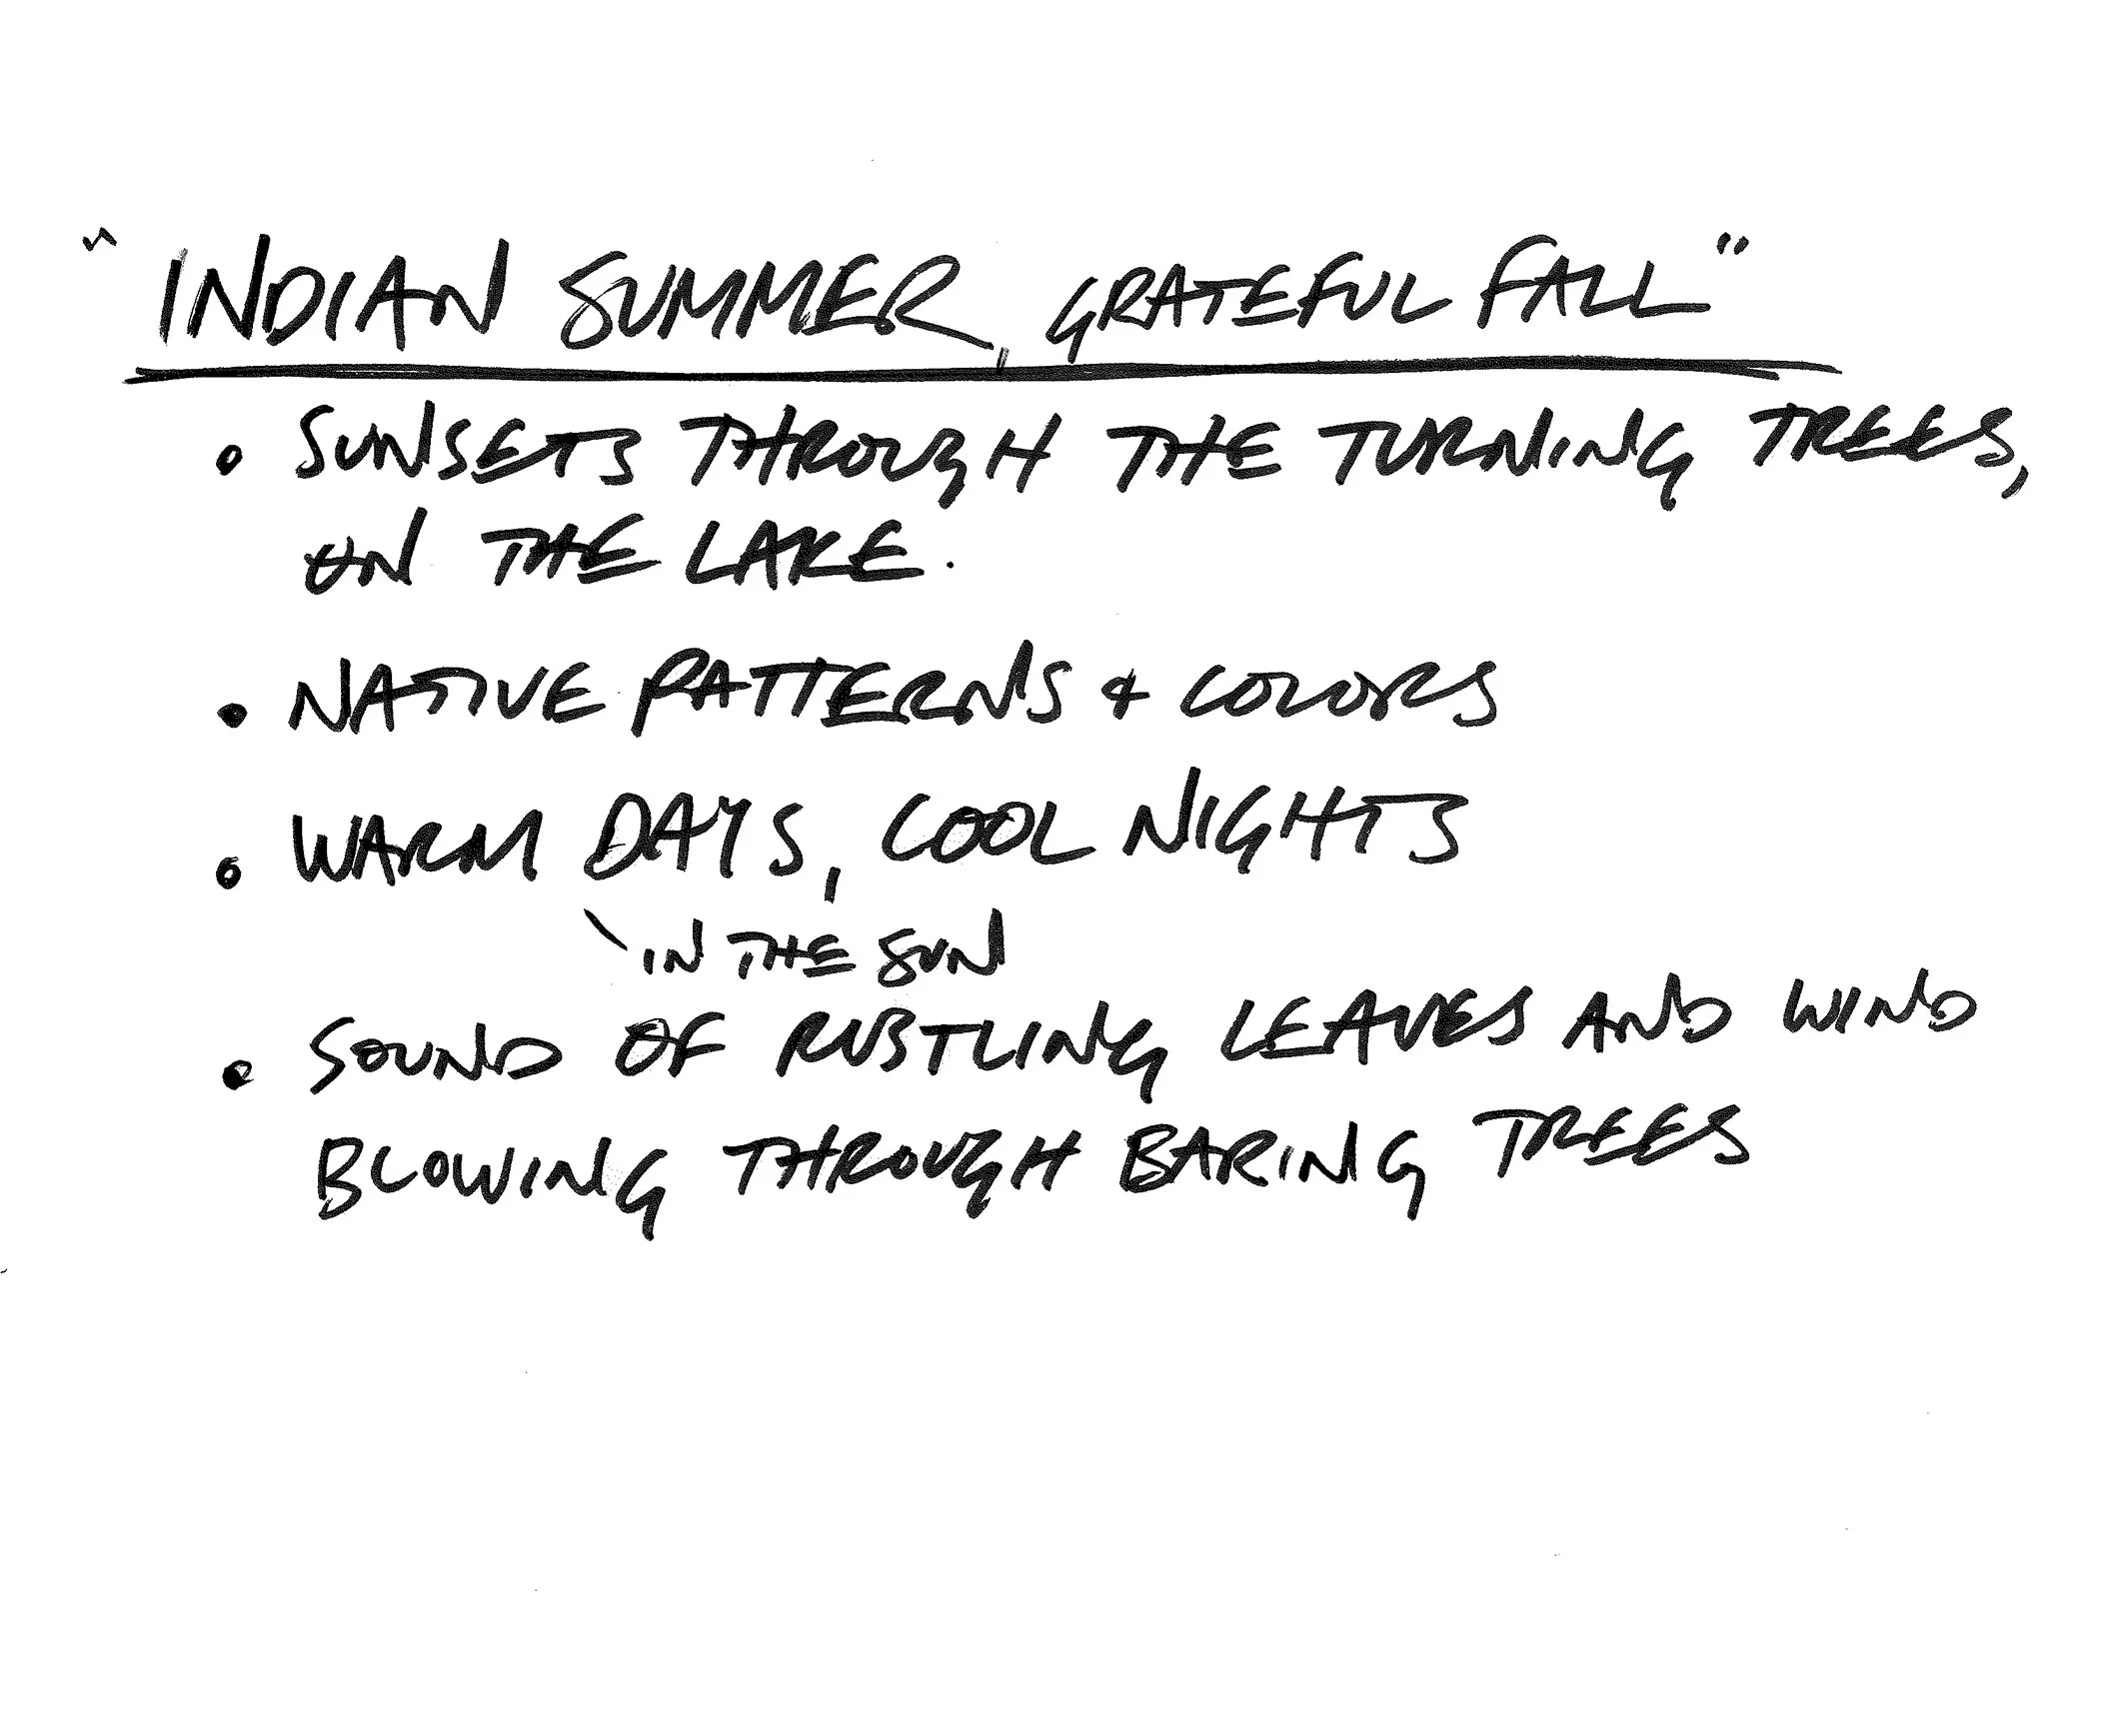 "INDIAN SUMMER, GRATEFUL FALL"
• SUNSETS THROUGH THE TURNING TREES,
ON THE LAKE.
• NATIVE PATTERNS & COLORS
• WARM DAYS, COOL NIGHTS
\ IN THE SUN
• SOUND OF RUSTLING LEAVES AND WIND
BLOWING THROUGH BARING TREES